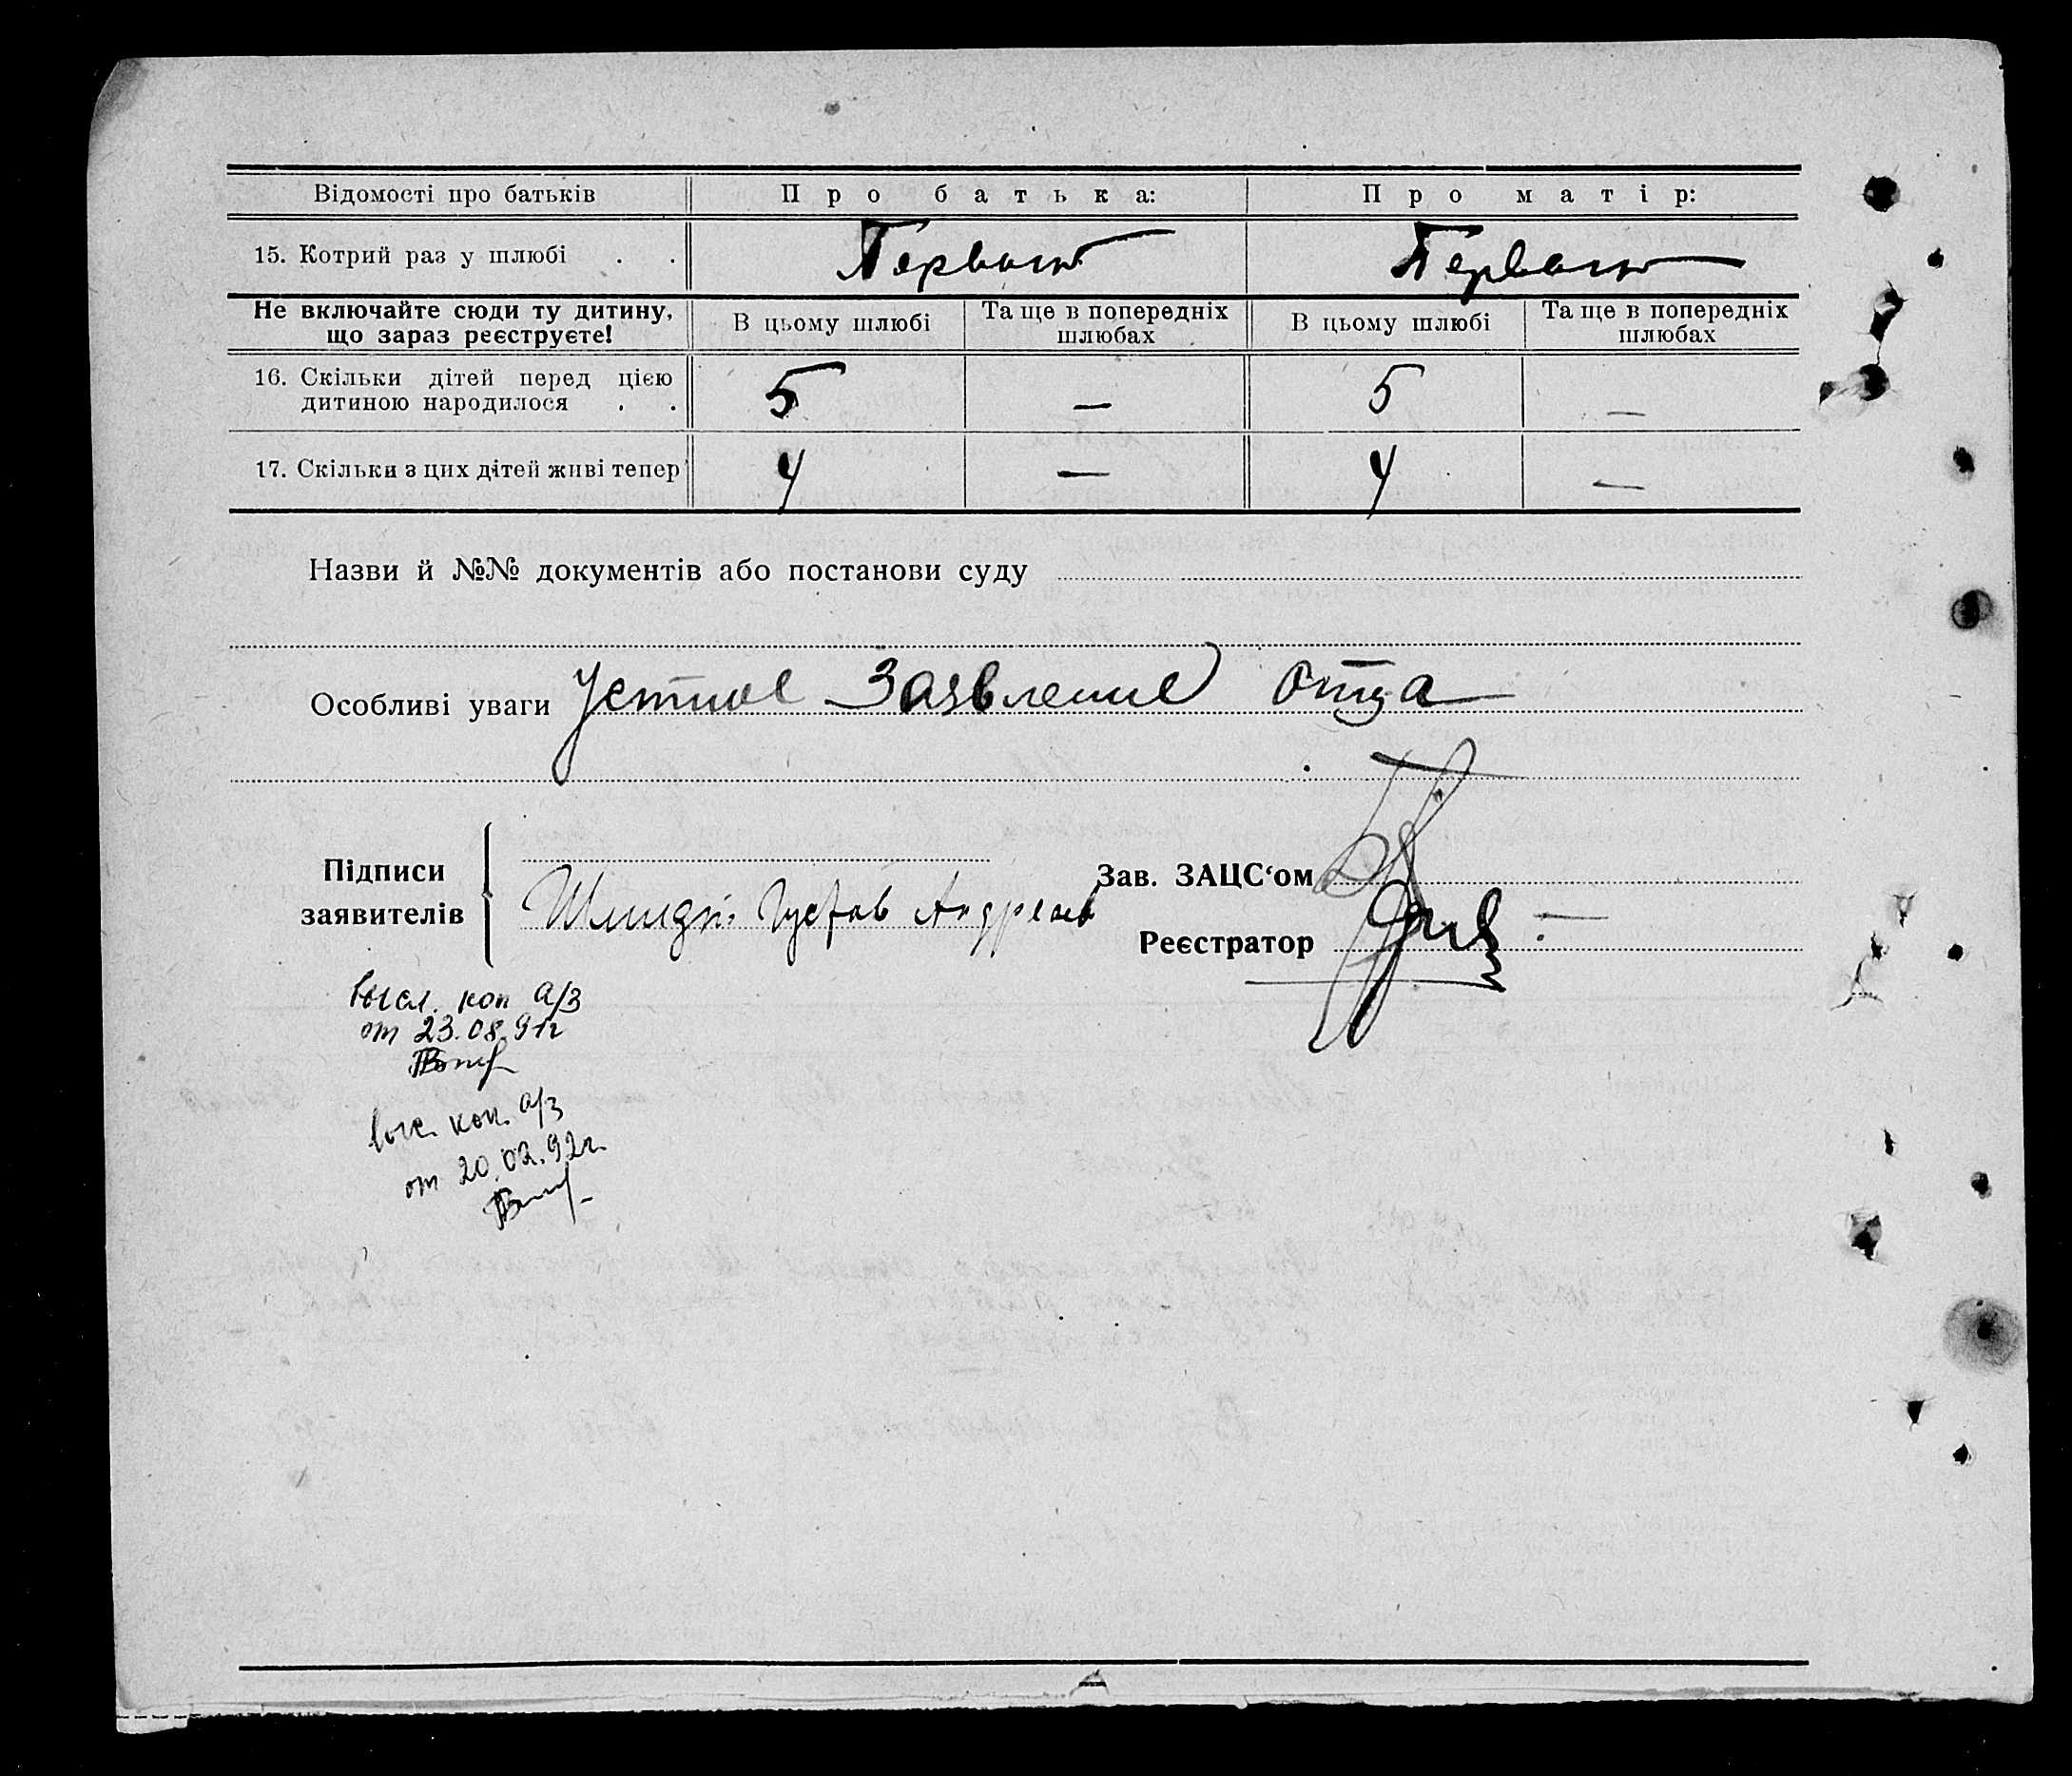 Відомості про батьків Про батька: Про матір:
15. Котрий раз у шлюбі . . Первый Первый
Не включайте сюди ту дитину, що зараз реєструєте! В цьому шлюбі Та ще в попередніх шлюбах В цьому шлюбі Та ще в попередніх шлюбах
16. Скільки дітей перед цією дитиною народилося . . 5 — 5 —
17. Скільки з цих дітей живі тепер 4 — 4 —
Назви й №№ документів або постанови суду
Особливі уваги Устное Заявление отца
Підписи заявителів
Шмидт Густав Андреев
Зав. ЗАЦС‘ом
Реєстратор
высл. коп а/з
от 23.08.91г
выс. коп. а/з
от 20.02.92г.